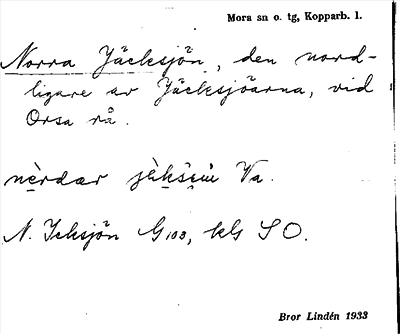 Mora sn o. tg, Kopparb. l.
Norra Jäcksjön, den nord-
ligare av Jäcksjöarna, vid
Orsa rå.
Va.
N. Icksjön G103, kbl S O.
Bror Lindén 1933